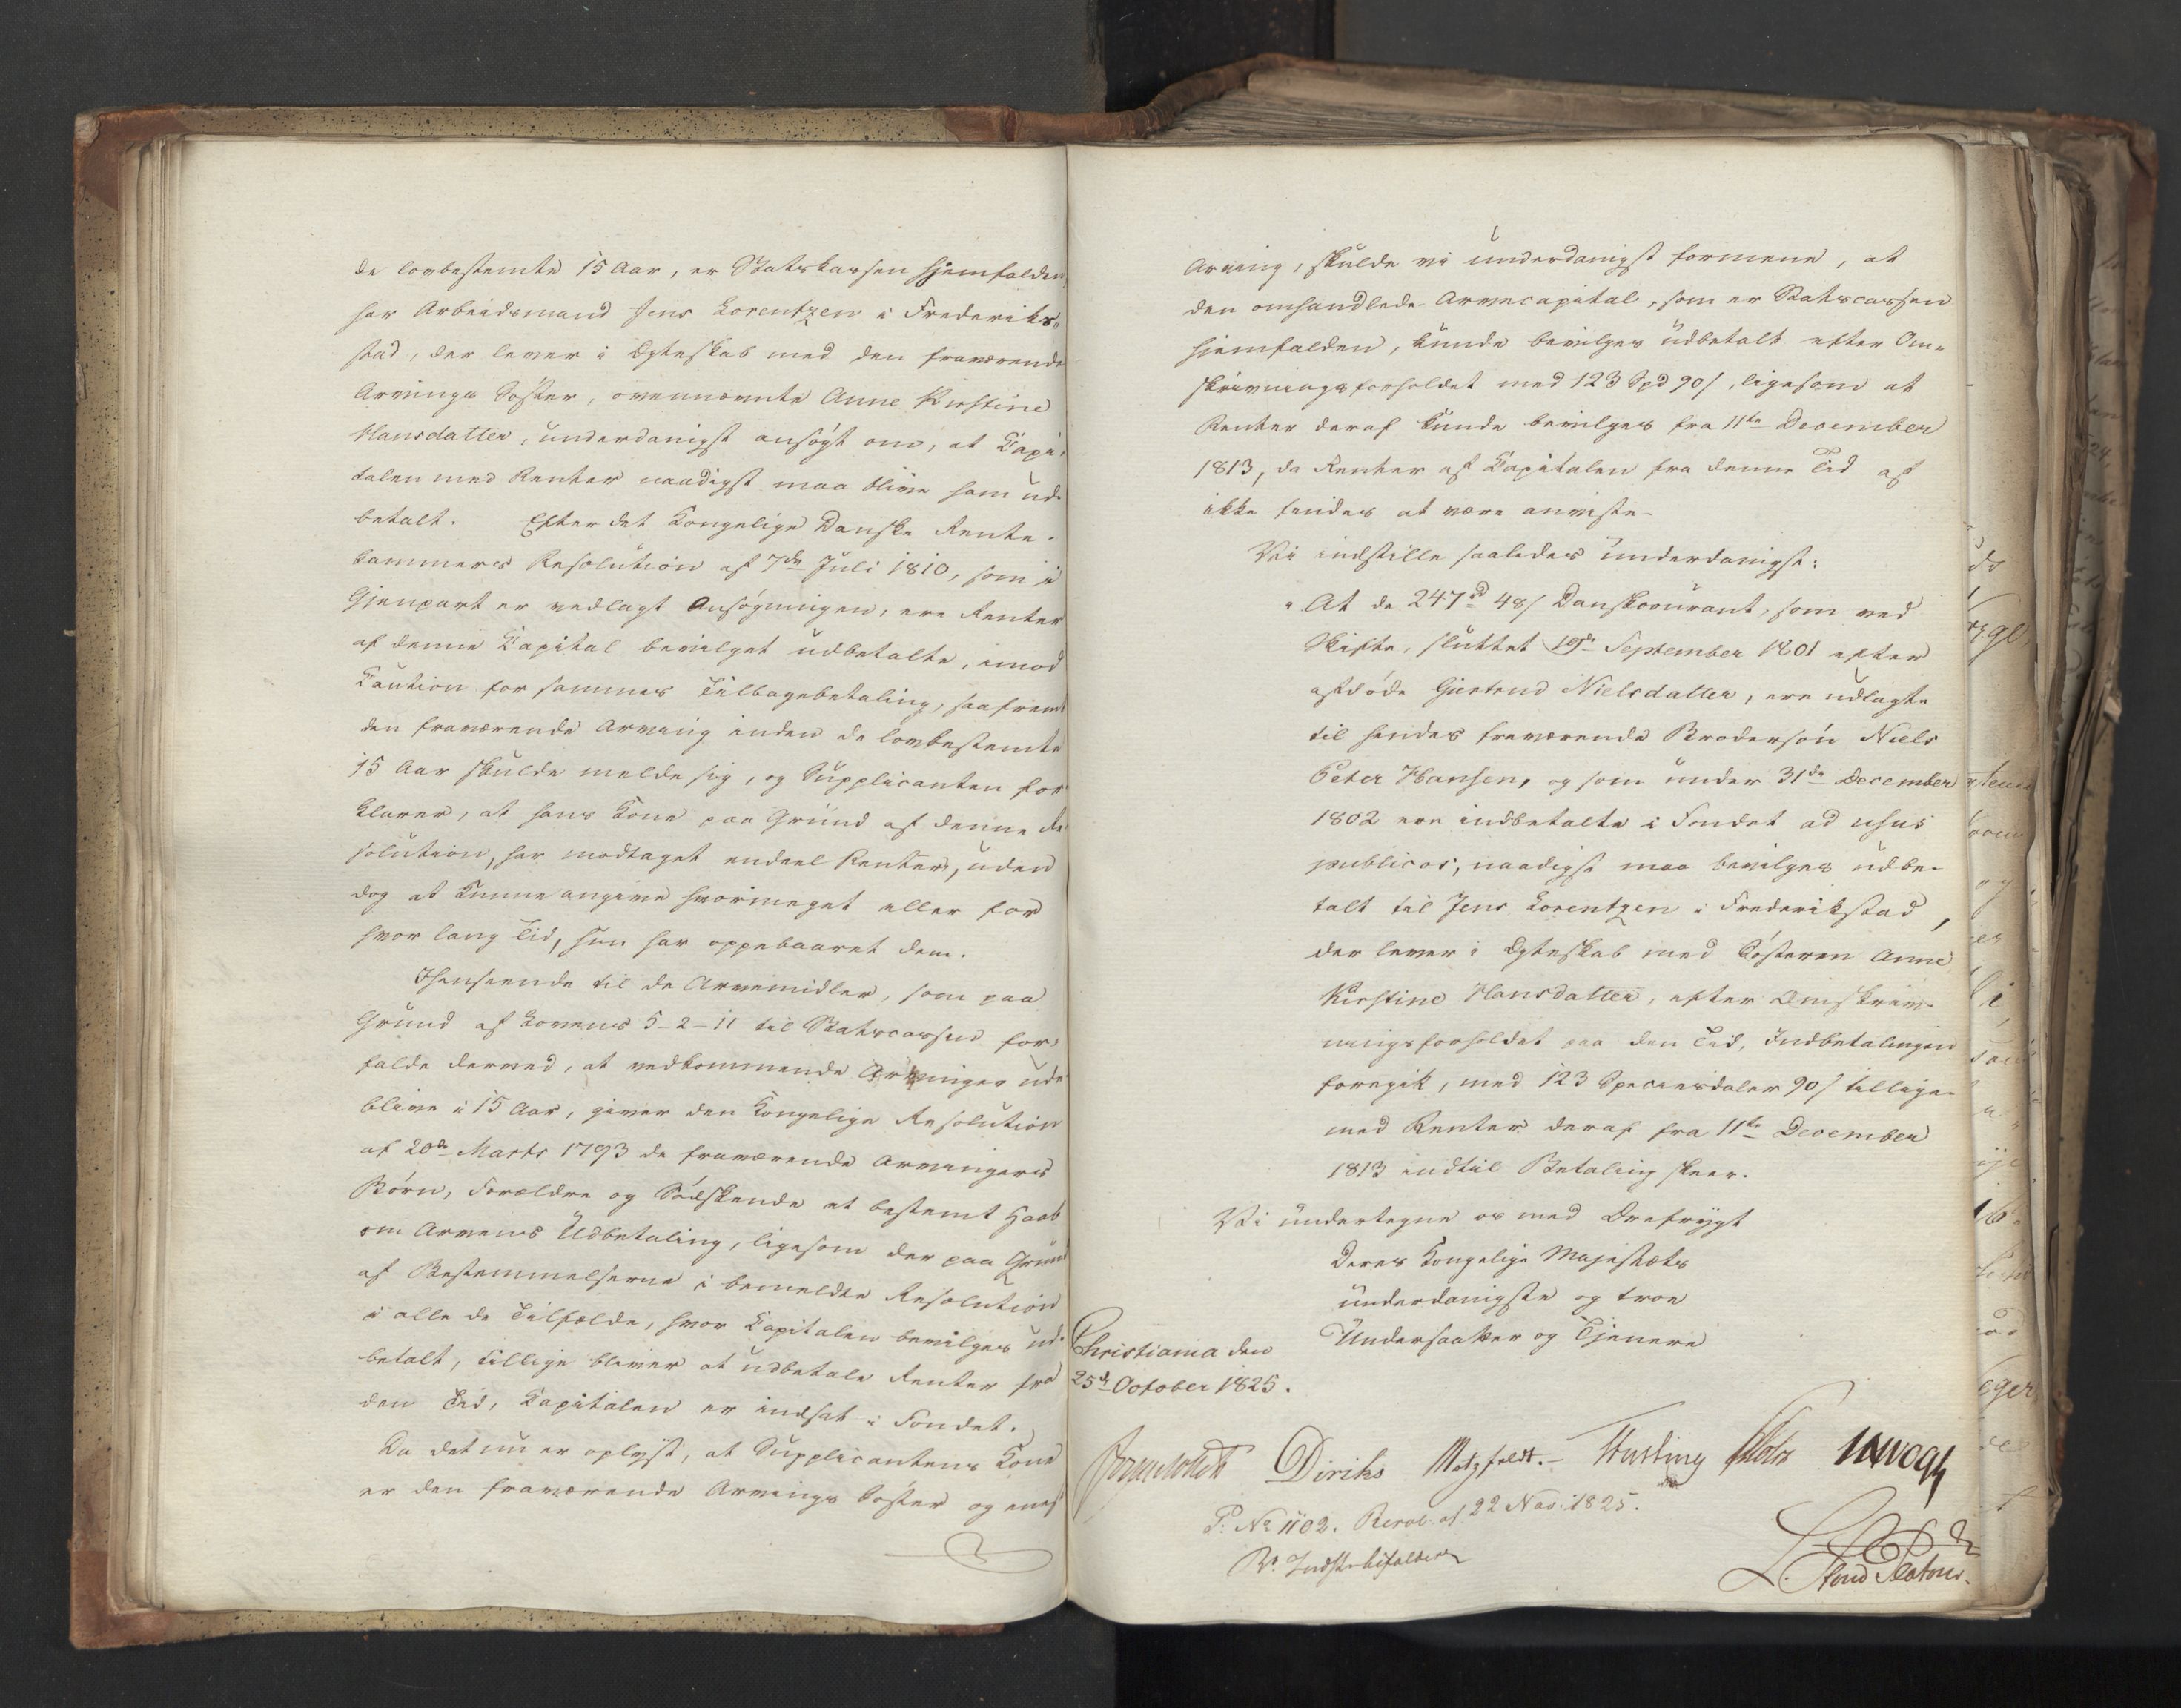 de lovbestemte 15 Aar, er Statskassen hjemfalden,
har Arbeidsmand Jens Lorentzen i Frederik-
stad, der lever i Egteskab med den fraværende
Arvings Søster, ovennævnte Anne Kirstine
Hansdatter, underdanigst ansøgt om, at Capi-
talen med Renter naadigst maa blive ham ud-
betalt. Efter det Kongelige Danske Rente-
kammers Resolution af 7de Juli 1810, som i
Gjenpart er vedlagt Ansøgningen, ere Renter
af denne Capital bevilget udbetalte, imod
Caution for sammes Tilbagebetaling, saafremt
den fraværende Arving inden de lovbestemte
15 Aar skulde melde sig, og Supplicanten for-
klarer, at hans Kone paa Grund af denne Re-
solution, har modtaget endeel Renter, uden
dog at kunne angive hvormeget eller for
hvor lang Tid, hun har oppebaaret dem.
Ihenseende til de Arvemidler, som paa
Grund af Lovens 5-2-11 til Statscassen for-
falde derved, at vedkommende Arvinger ude-
blive i 15 Aar, giver den Kongelige Resolution
af 20de Marts 1793 de fraværende Arvingers
Børn, Forældre og Sødskende et bestemt Haab
om Arvens Udbetaling, ligesom der paa Grund
af Bestemmelserne i bemeldte Resolution
i alle de Tilfælde, hvor Capitalen bevilges ud-
betalt, tillige bliver at udbetale Renter fra
den Tid, Capitalen er indsat i Fondet.
Da det nu er oplyst, at Supplicantens Kone
er den fraværende Arvings Søster og eneste
Arving, skulde vi underdanigst formene, at
den omhandlede Arvecapital, som er Statscassen
hjemfalden, kunde bevilges udbetalt efter Om-
skrivningsforholdet med 123 Spd 90 s, ligesom at
Renter deraf kunde bevilges fra 11te December
1813, da Renter af Capitalen fra denne Tid af
ikke findes at være anviste.
Vi indstille saaledes underdanigst:
"At de 247 rd 48 s Danskcourant, som ved
Skifte, sluttet 19de September 1801 efter
afdøde Giertrud Nielsdatter, ere udlagte
til hendes fraværende Brodersøn Niels
Peter Hansen, og som under 31de December
1802 ere indbetalte i Fondet ad usus
publicos, naadigst maa bevilges udbe-
talt til Jens Lorentzen i Frederikstad,
der lever i Egteskab med Søsteren Anne
Kirstine Hansdatter, efter Omskriv-
ningsforholdet paa den Tid, Indbetalingen
foregik, med 123 Speciesdaler 90 s tillige-
med Renter deraf fra 11te December
1813 indtil Betaling skeer.
Vi undertegne os med Ærefrygt
Deres Kongelige Majestæts
underdanigste og troe
Undersaatter og Tjenere
Christiania den
25de October 1825.
Diriks Motzfeldt. Krogh
P: No 1102. Resol. af 22 Nov: 1825.
Rs Indst. bifaldes